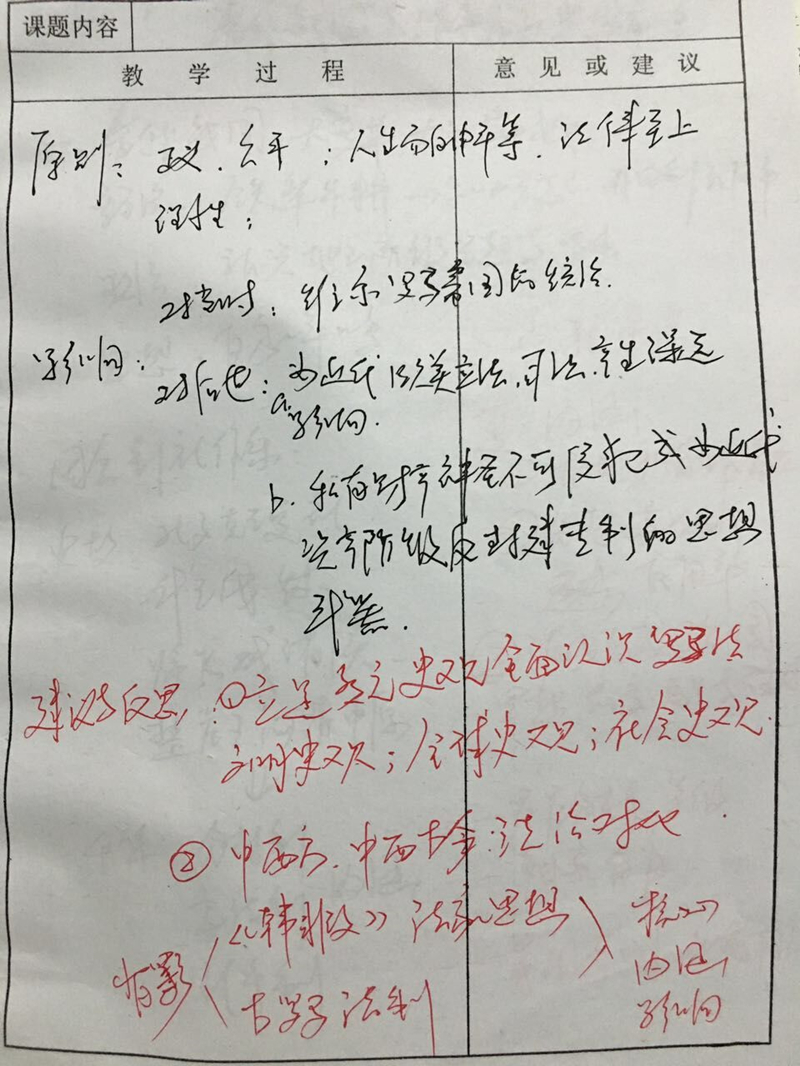 课题内容
教学过程
意见或建议
原则：正义、公平；人生而自由平等、法律至上
理性；
对当时：维系罗马帝国的统治.
影响：
对后世：a.为近代欧美立法、司法产生深远
影响.
b.私有财产神圣不可侵犯成为近代
资产阶级反封建专制的思想
武器.
建议与反思：①立足多元史观全面认识罗马法
文明史观；全球史观；社会史观.
② 中西方、中西古今法治对比.
《韩非子》法家思想
核心
内涵
影响
古罗马法制